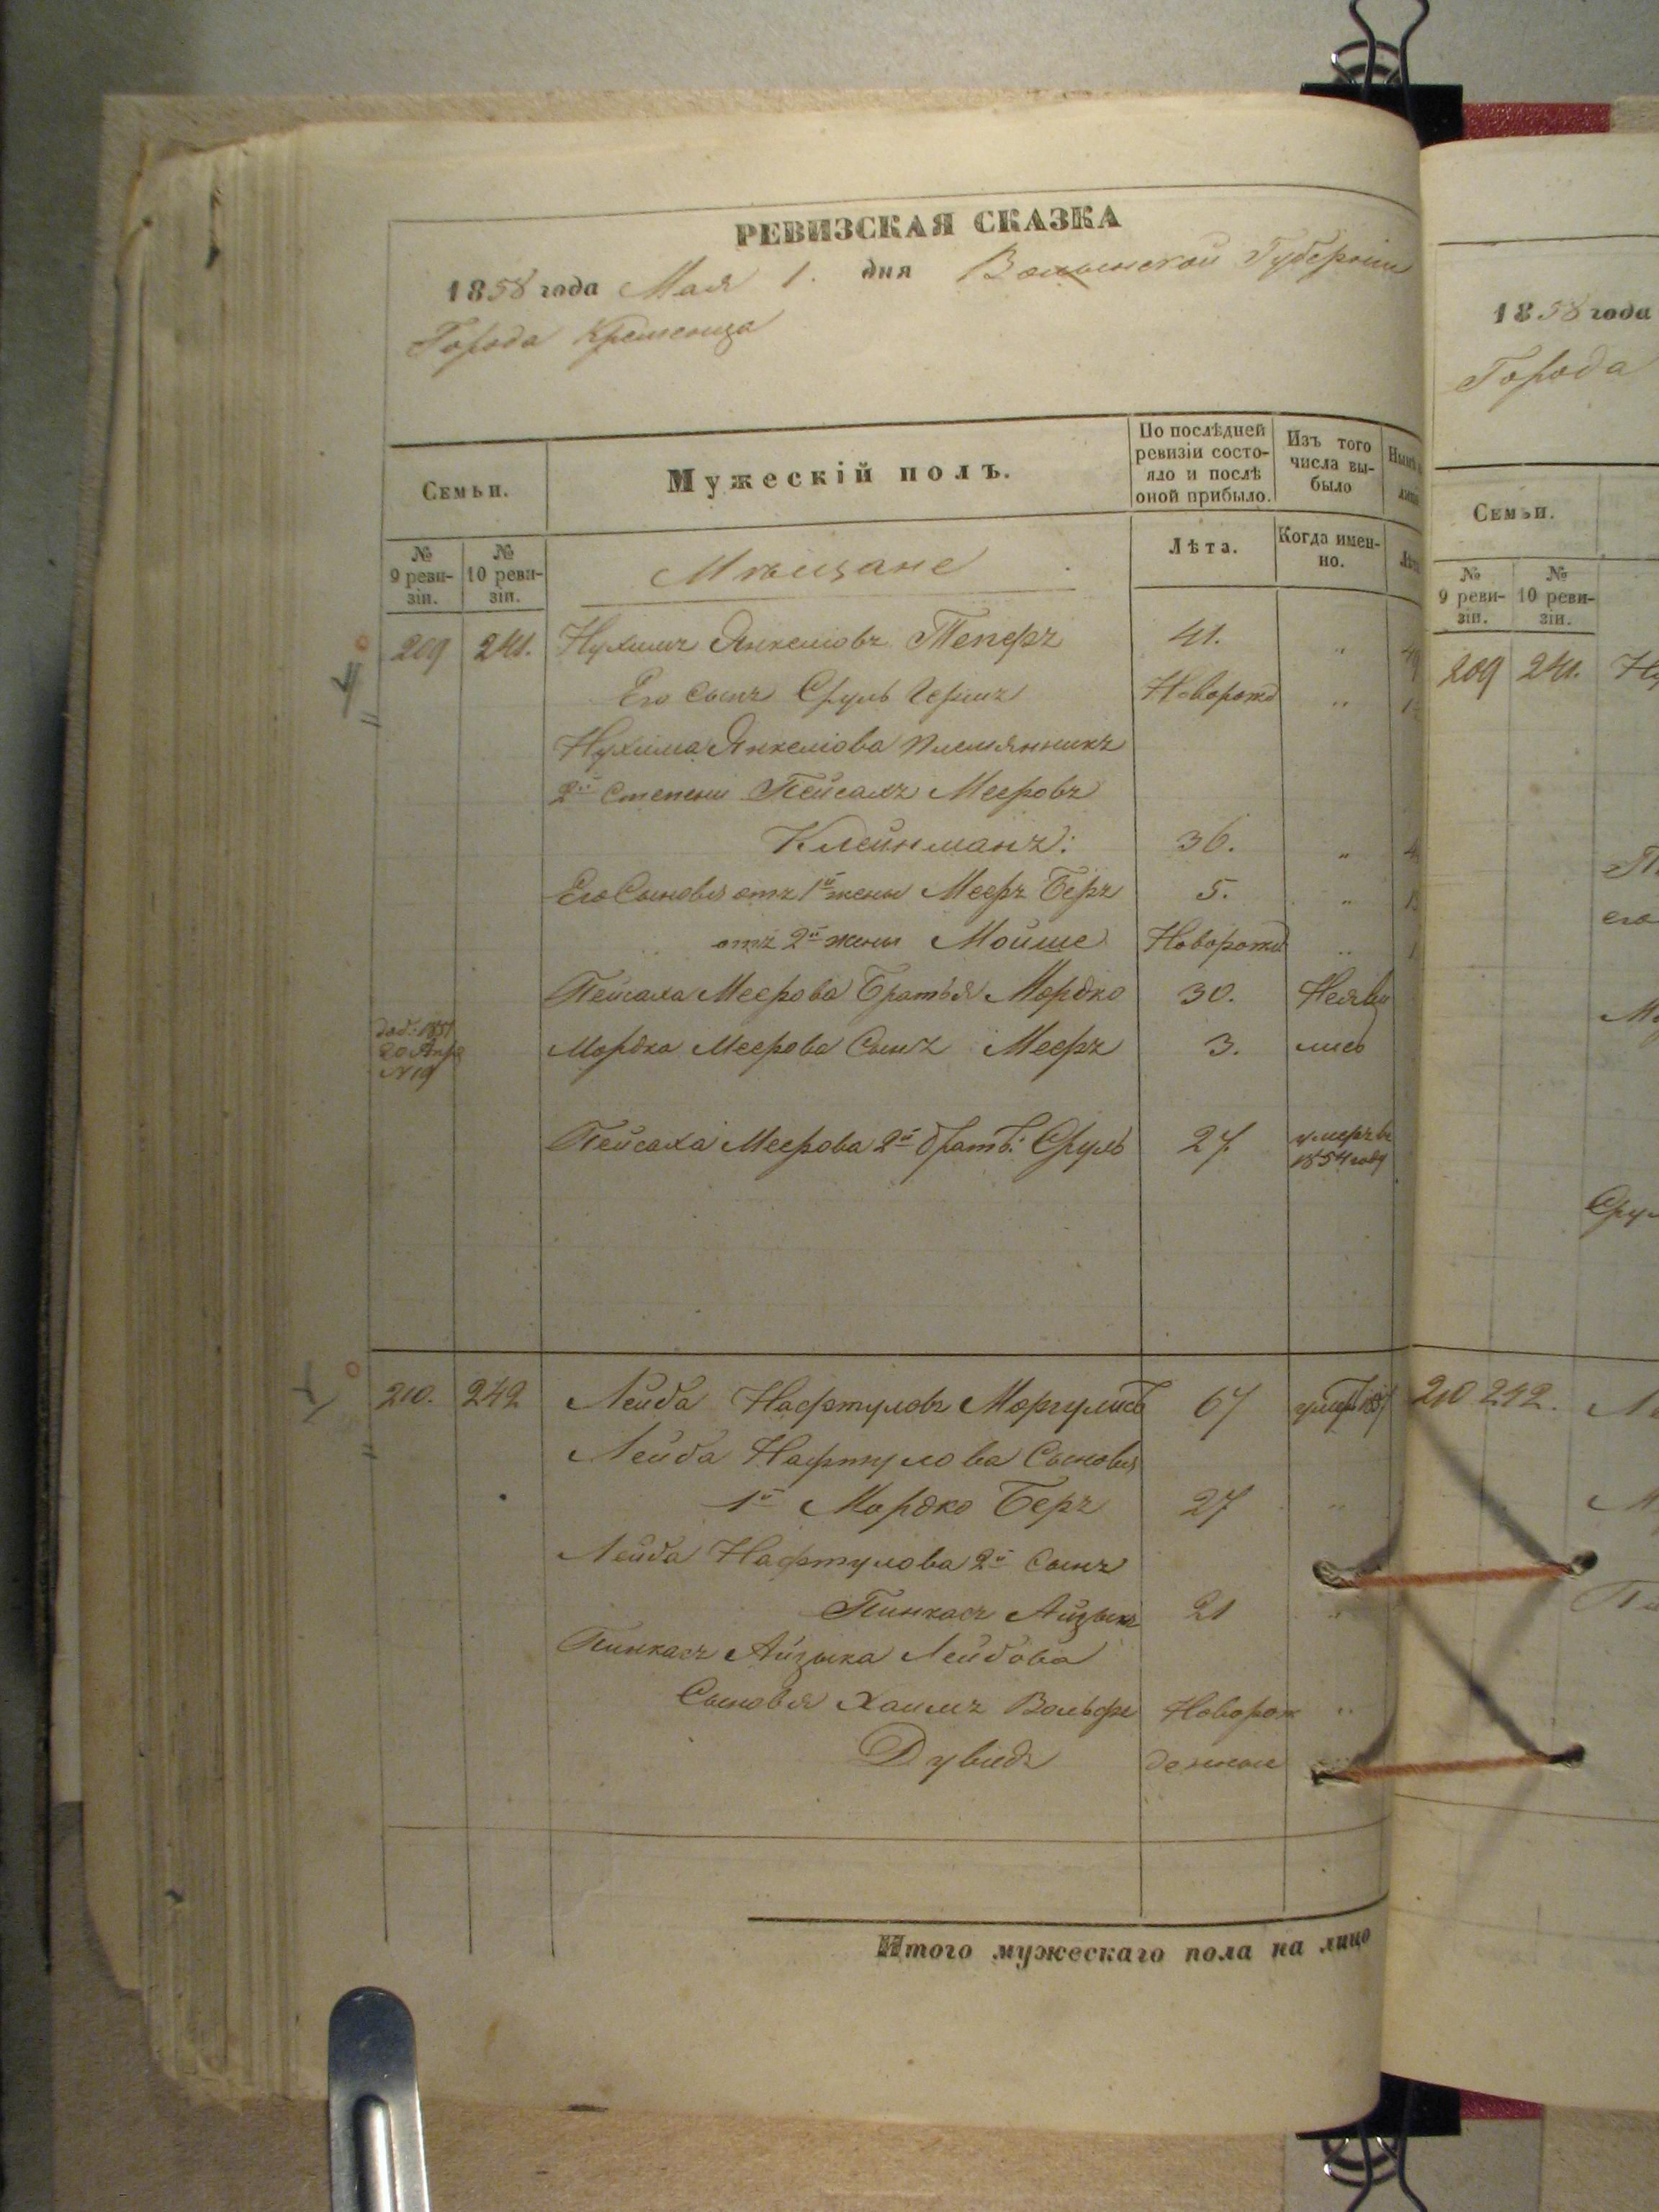 РЕВИЗСКАЯ СКАЗКА
1858 года Мая 1. дня Волынской Губерніи
Города Кременца
Семьи.
Мужескій полъ.
По послѣдней ревизіи состо-
яло и послѣ
оной прибыло.
Изъ того
числа вы-
было
№
9 реви-
зіи.
№
10 реви-
зіи.
Мѣщане
Лѣта.
Когда имен-
но.
209 241. Нухимъ Янкеліовъ Теперъ 41. "
Его Сынъ Сруль Гершъ Новорожд "
Нухима Янкеліова племянникъ
2й степени Пейсахъ Мееровъ
Клейнманъ: 36. "
Его Сыновья отъ 1й жены Мееръ Беръ 5. "
отъ 2й жены Мойше Новорожд "
Пейсаха Меерова Братья Мордко 30. Неяви
Мордка Меерова Сынъ Мееръ 3. лись
доб: 1851
20 Апр
№ 19
Пейсаха Меерова 2й братъ: Сруль 27. умеръ въ
1854 году
210. 242 Лейба Нафтуловъ Моргулисъ 67 умеръ 1857
Лейба Нафтулова Сыновья
1й Мордко Беръ 27 "
Лейба Нафтулова 2й Сынъ
Пинкасъ Айзыкъ 21 "
Пинкасъ Айзыка Лейбова
Сыновья Хаимъ Вольфъ Новорож "
Дувидъ денные "
Итого мужескаго пола на лицо
1858 года
Города
Семьи.
№
9 реви-
зіи.
№
10 реви-
зіи.
209 241.
его
210 242.